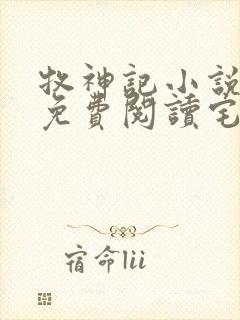 牧神記小說
免費閱讀宅
宿命lii